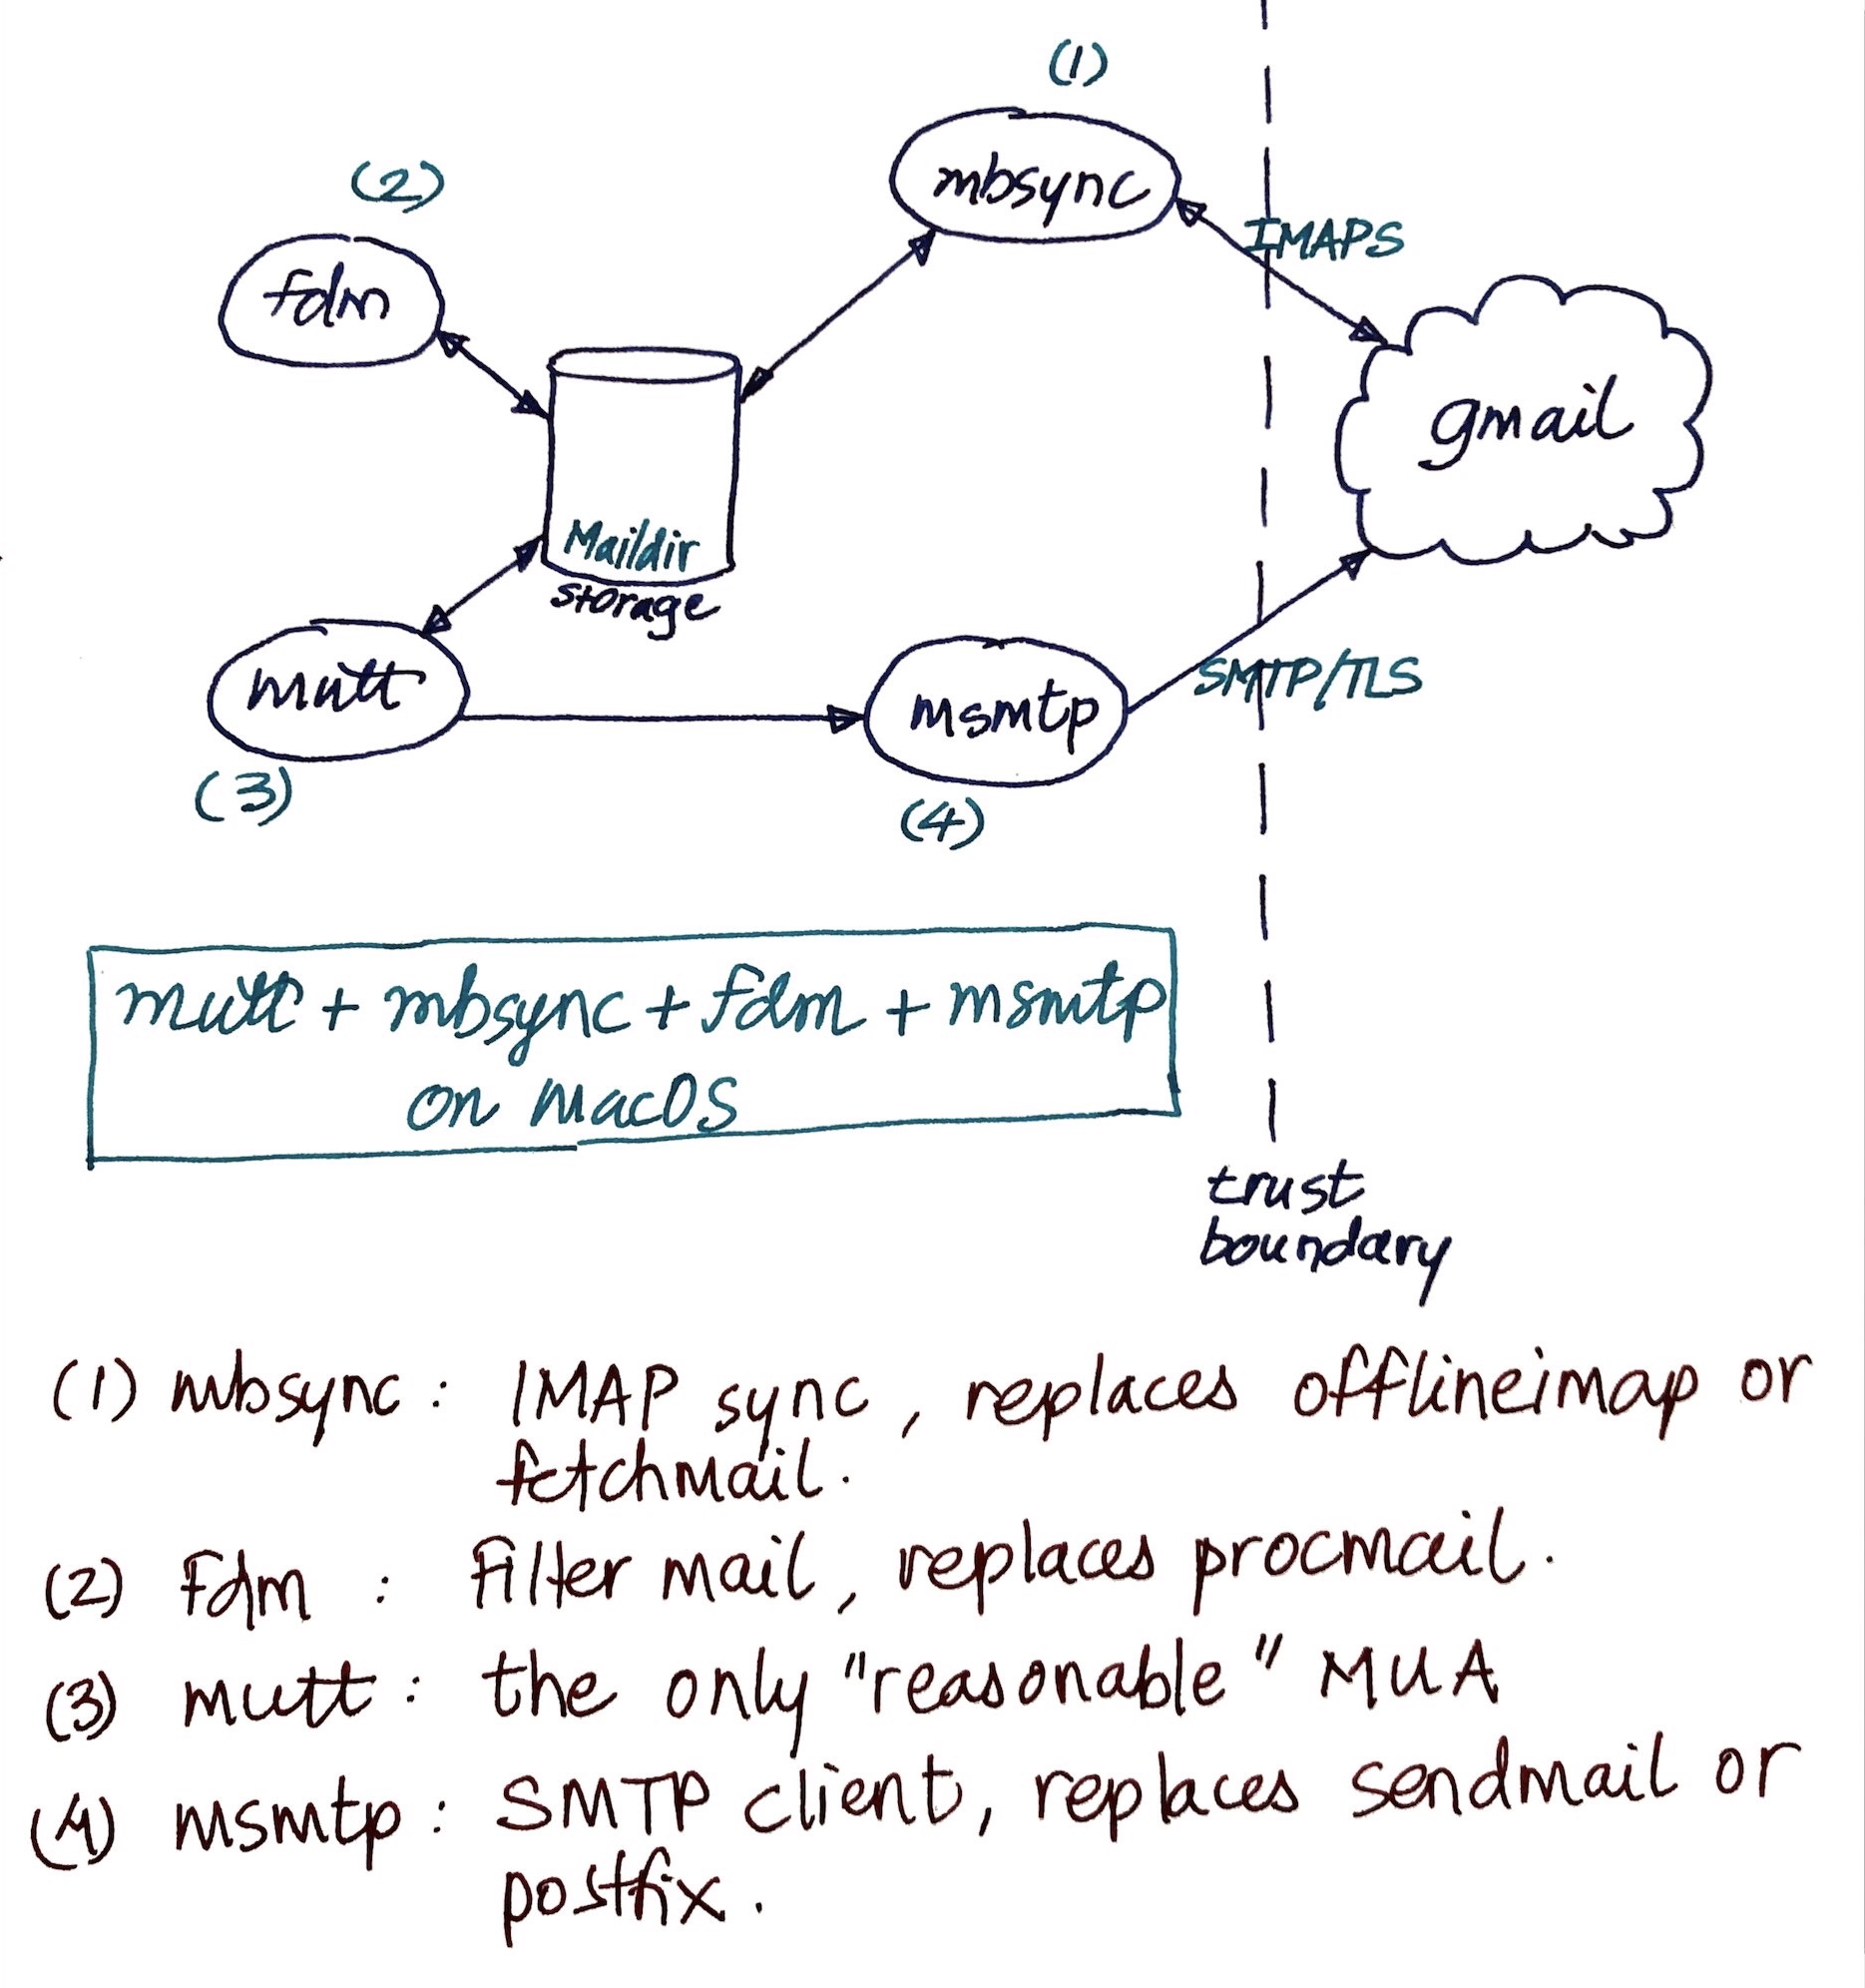 (1)
(2)
mbsync
IMAPS
fdm
gmail
Maildir
storage
mutt
msmtp
SMTP/TLS
(3)
(4)
mutt + mbsync + fdm + msmtp
on MacOS
trust
boundary
(1) mbsync : IMAP sync, replaces offlineimap or
fetchmail.
(2) Fdm : Filter mail, replaces procmail.
(3) mutt : the only "reasonable" MUA
(4) msmtp : SMTP client, replaces sendmail or
postfix.